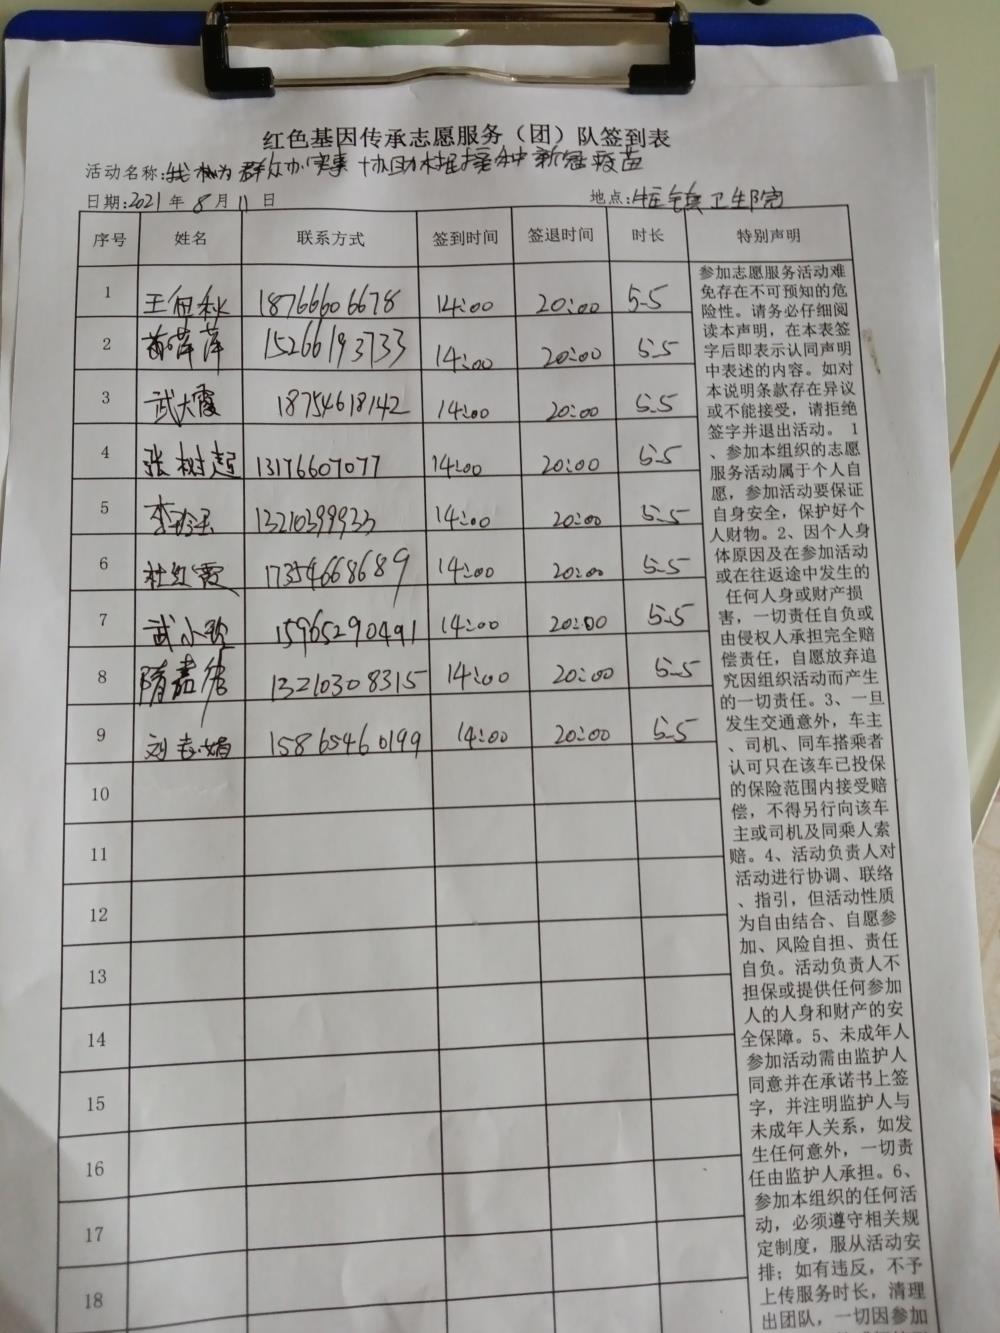 红色基因传承志愿服务（团）队签到表
活动名称:我为群众办实事 协助村接种新冠疫苗
日期:2021年8月11日 地点:镇卫生院
序号 姓名 联系方式 签到时间 签退时间 时长 特别声明
1 王 秋 18766606678 14:00 20:00 5.5
2 萍萍 15266193733 14:00 20:00 5.5
3 武大霞 18754618142 14:00 20:00 5.5
4 张树起 13176607077 14:00 20:00 5.5
5 李玉 13210399933 14:00 20:00 5.5
6 杜红霞 17354668689 14:00 20:00 5.5
7 武小 15965290491 14:00 20:00 5.5
8 隋嘉 13210308315 14:00 20:00 5.5
9 刘志娟 15865460199 14:00 20:00 5.5
10
11
12
13
14
15
16
17
18
参加志愿服务活动难
免存在不可预知的危
险性。请务必仔细阅
读本声明，在本表签
字后即表示认同声明
中表述的内容。如对
本说明条款存在异议
或不能接受，请拒绝
签字并退出活动。 1
、参加本组织的志愿
服务活动属于个人自
愿，参加活动要保证
自身安全，保护好个
人财物。2、因个人身
体原因及在参加活动
或在往返途中发生的
任何人身或财产损
害，一切责任自负或
由侵权人承担完全赔
偿责任，自愿放弃追
究因组织活动而产生
的一切责任。3、一旦
发生交通意外，车主
、司机、同车搭乘者
认可只在该车已投保
的保险范围内接受赔
偿，不得另行向该车
主或司机及同乘人索
赔。4、活动负责人对
活动进行协调、联络
、指引，但活动性质
为自由结合、自愿参
加、风险自担、责任
自负。活动负责人不
担保或提供任何参加
人的人身和财产的安
全保障。5、未成年人
参加活动需由监护人
同意并在承诺书上签
字，并注明监护人与
未成年人关系，如发
生任何意外，一切责
任由监护人承担。6、
参加本组织的任何活
动，必须遵守相关规
定制度，服从活动安
排；如有违反，不予
上传服务时长，清理
出团队，一切因参加